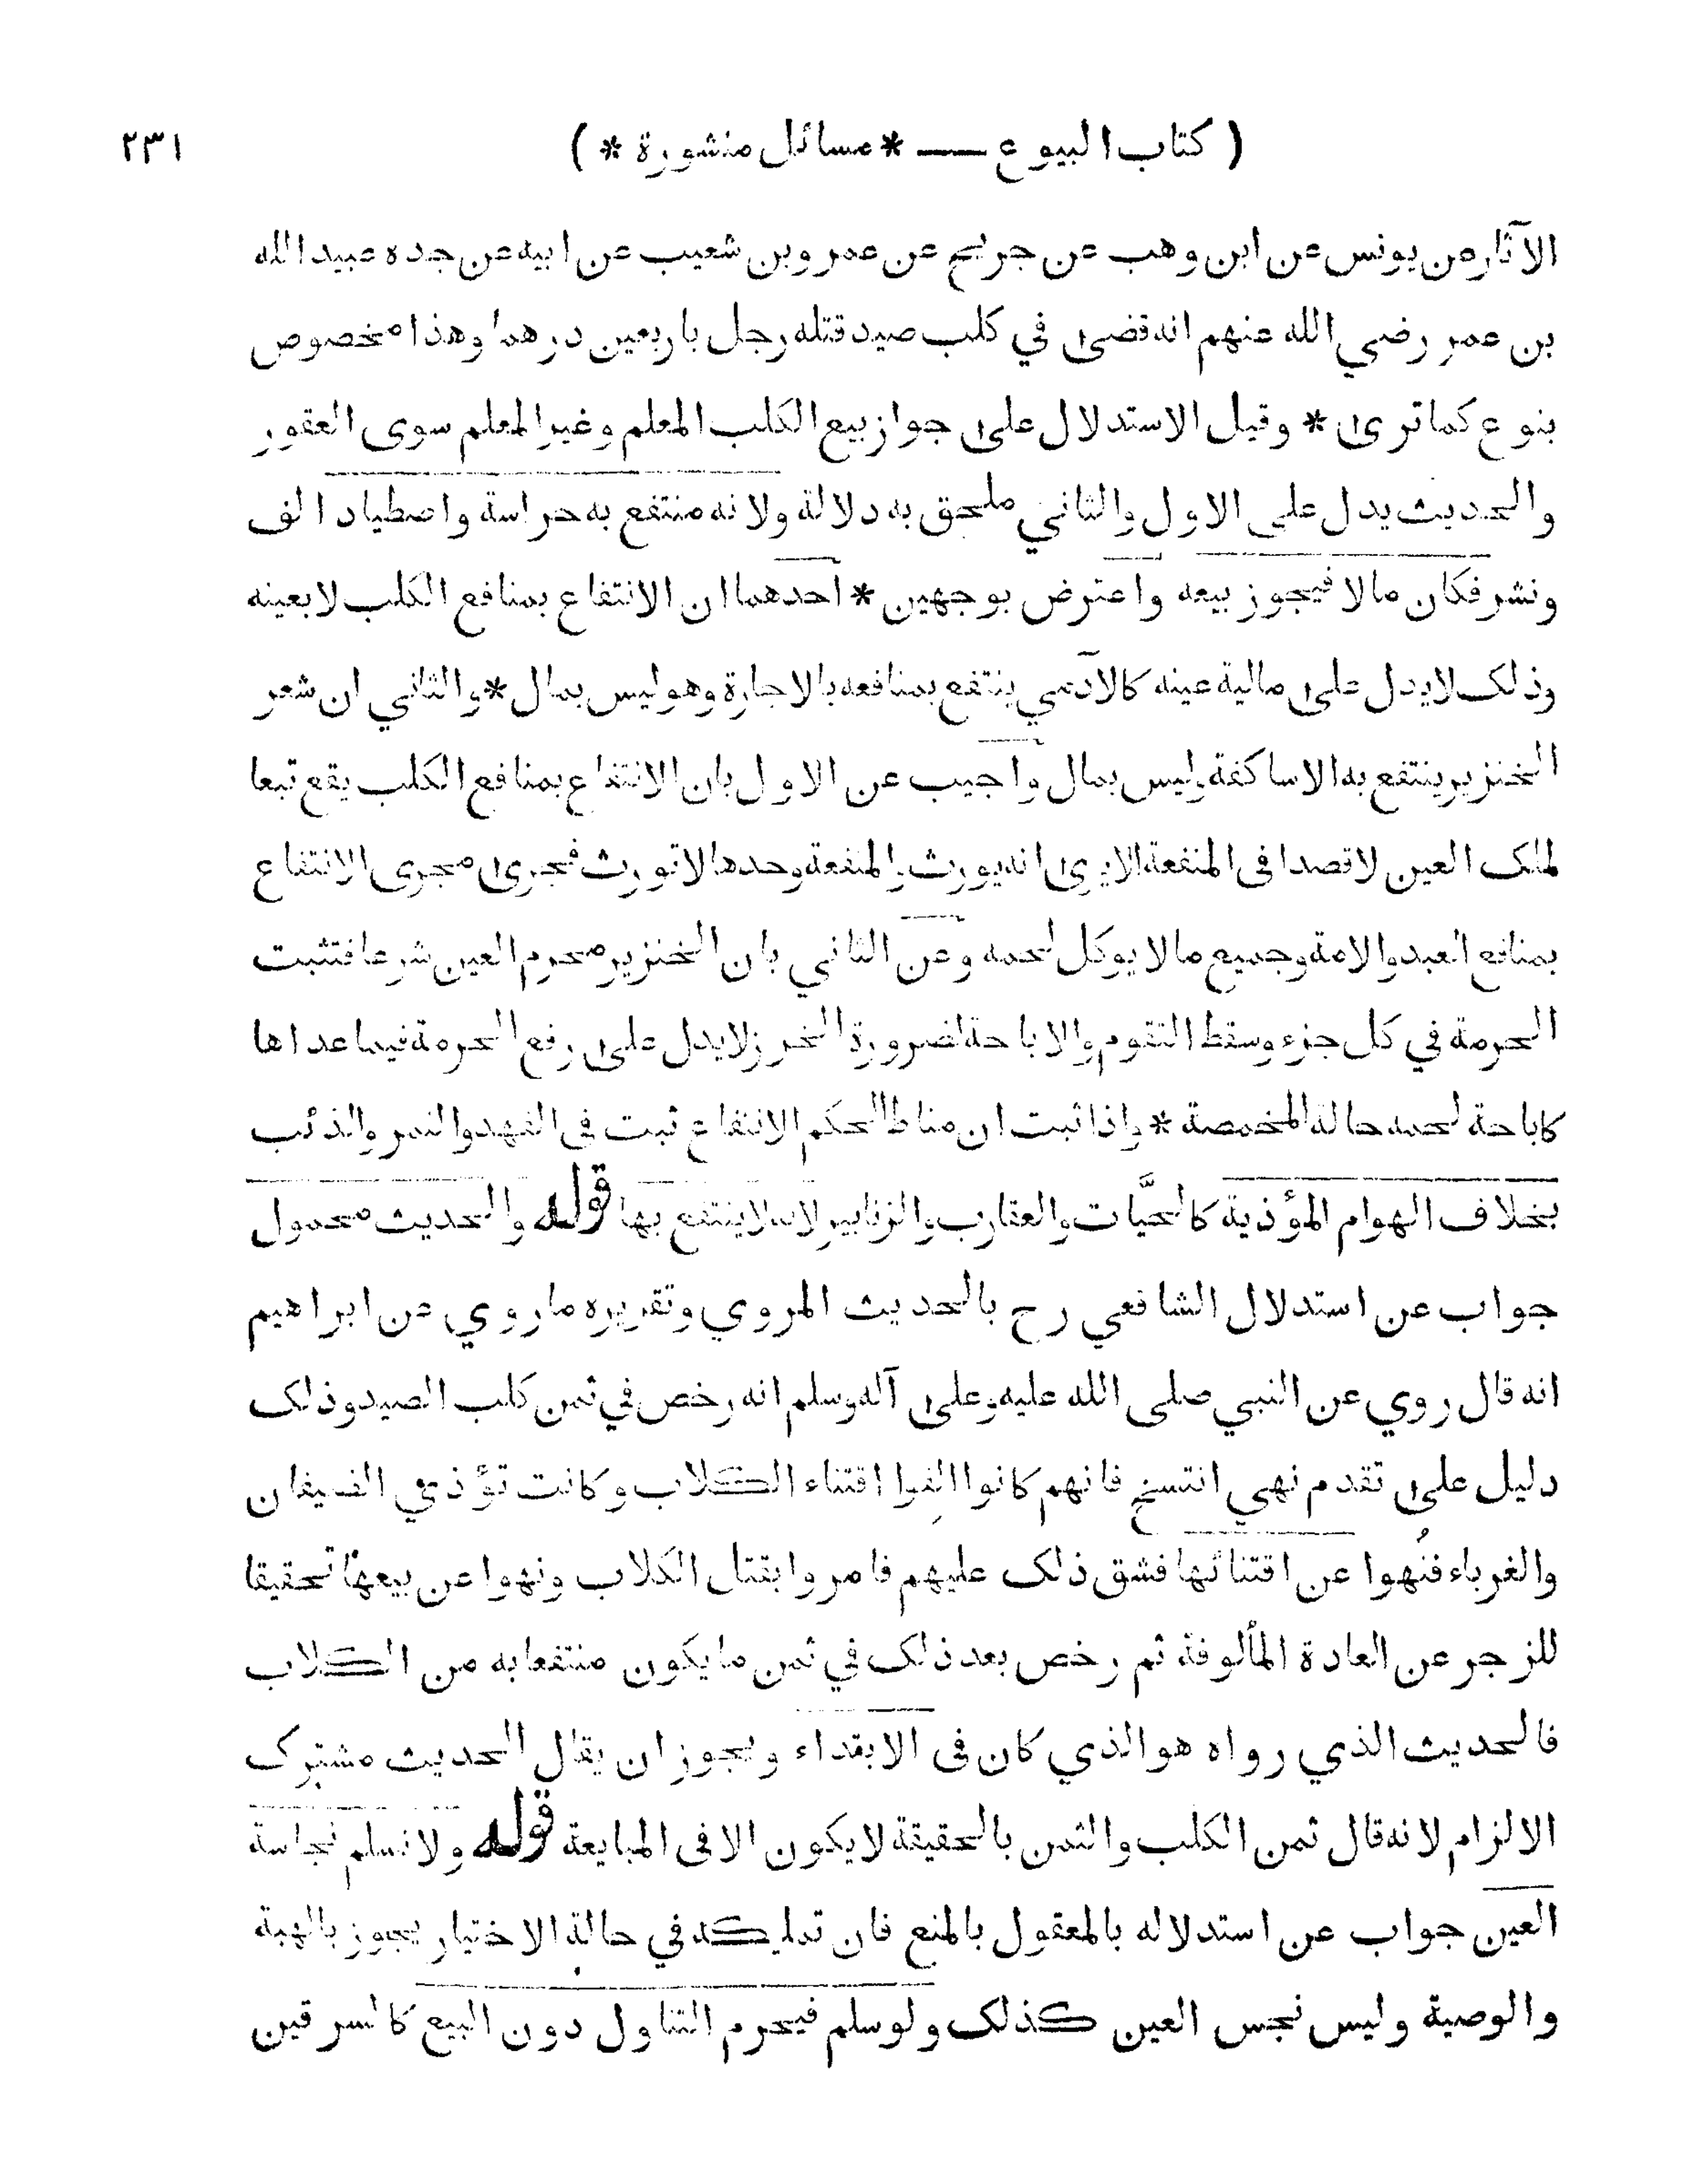 ( كتاب البيوع — * مسائل منثورة * ) ٢٣١
الآثار عن يونس عن ابن وهب عن جريج عن عمرو بن شعيب عن ابيه عن جده عبيد الله
بن عمر رضي الله عنهم انه قضى في كلب صيد قتله رجل باربعين درهما وهذا مخصوص
بنوع كما ترى * وقيل الاستدلال على جواز بيع الكلب المعلم وغير المعلم سوى العقور
والحديث يدل على الاول والثاني ملحق به دلالة ولانه منتفع به حراسة واصطياد الف
ونشر فكان مالا فيجوز بيعه واعترض بوجهين * احدهما ان الانتفاع بمنافع الكلب لابعينه
وذلك لايدل على مالية عينه كالآدمي ينتفع بمنافعه بالاجارة وهو ليس بمال * والثاني ان شعر
الخنزير ينتفع به الاساكفة وليس بمال واجيب عن الاول بان الانتفاع بمنافع الكلب يقع تبعا
لملك العين لاقصدا في المنفعة الايرى انه يورث والمنفعة وحدها لاتورث فجرى مجرى الانتفاع
بمنافع العبد والامة وجميع مالايوكل لحمه وعن الثاني بان الخنزير محرم العين شرعا فتثبت
الحرمة في كل جزء وسقط التقوم والاباحة لضرورة الخرز لايدل على رفع الحرمة فيما عداها
كاباحة لحمه حالة المخمصة * واذا ثبت ان مناط الحكم الانتفاع ثبت في الفهد والنمر والذئب
بخلاف الهوام المؤذية كالحيَّات والعقارب والزنابير لانه لاينتفع بها قوله والحديث محمول
جواب عن استدلال الشافعي رح بالحديث المروي وتقريره ماروي عن ابراهيم
انه قال روي عن النبي صلى الله عليه وعلى آله وسلم انه رخص في ثمن كلب الصيد وذلك
دليل على تقدم نهي انتسخ فانهم كانوا الفوا اقتناء الكلاب وكانت تؤذي الضيفان
والغرباء فنُهوا عن اقتنائها فشق ذلك عليهم فامروا بقتل الكلاب ونهوا عن بيعها تحقيقا
للزجر عن العادة المألوفة ثم رخص بعد ذلك في ثمن مايكون منتفعا به من الكلاب
فالحديث الذي رواه هو الذي كان في الابتداء ويجوز ان يقال الحديث مشترك
الالزام لانه قال ثمن الكلب والثمن بالحقيقة لايكون الا في المبايعة قوله ولانسلم نجاسة
العين جواب عن استدلاله بالمعقول بالمنع فان تمليكه في حالة الاختيار يجوز بالهبة
والوصية وليس نجس العين كذلك ولو سلم فيحرم التناول دون البيع كالسرقين